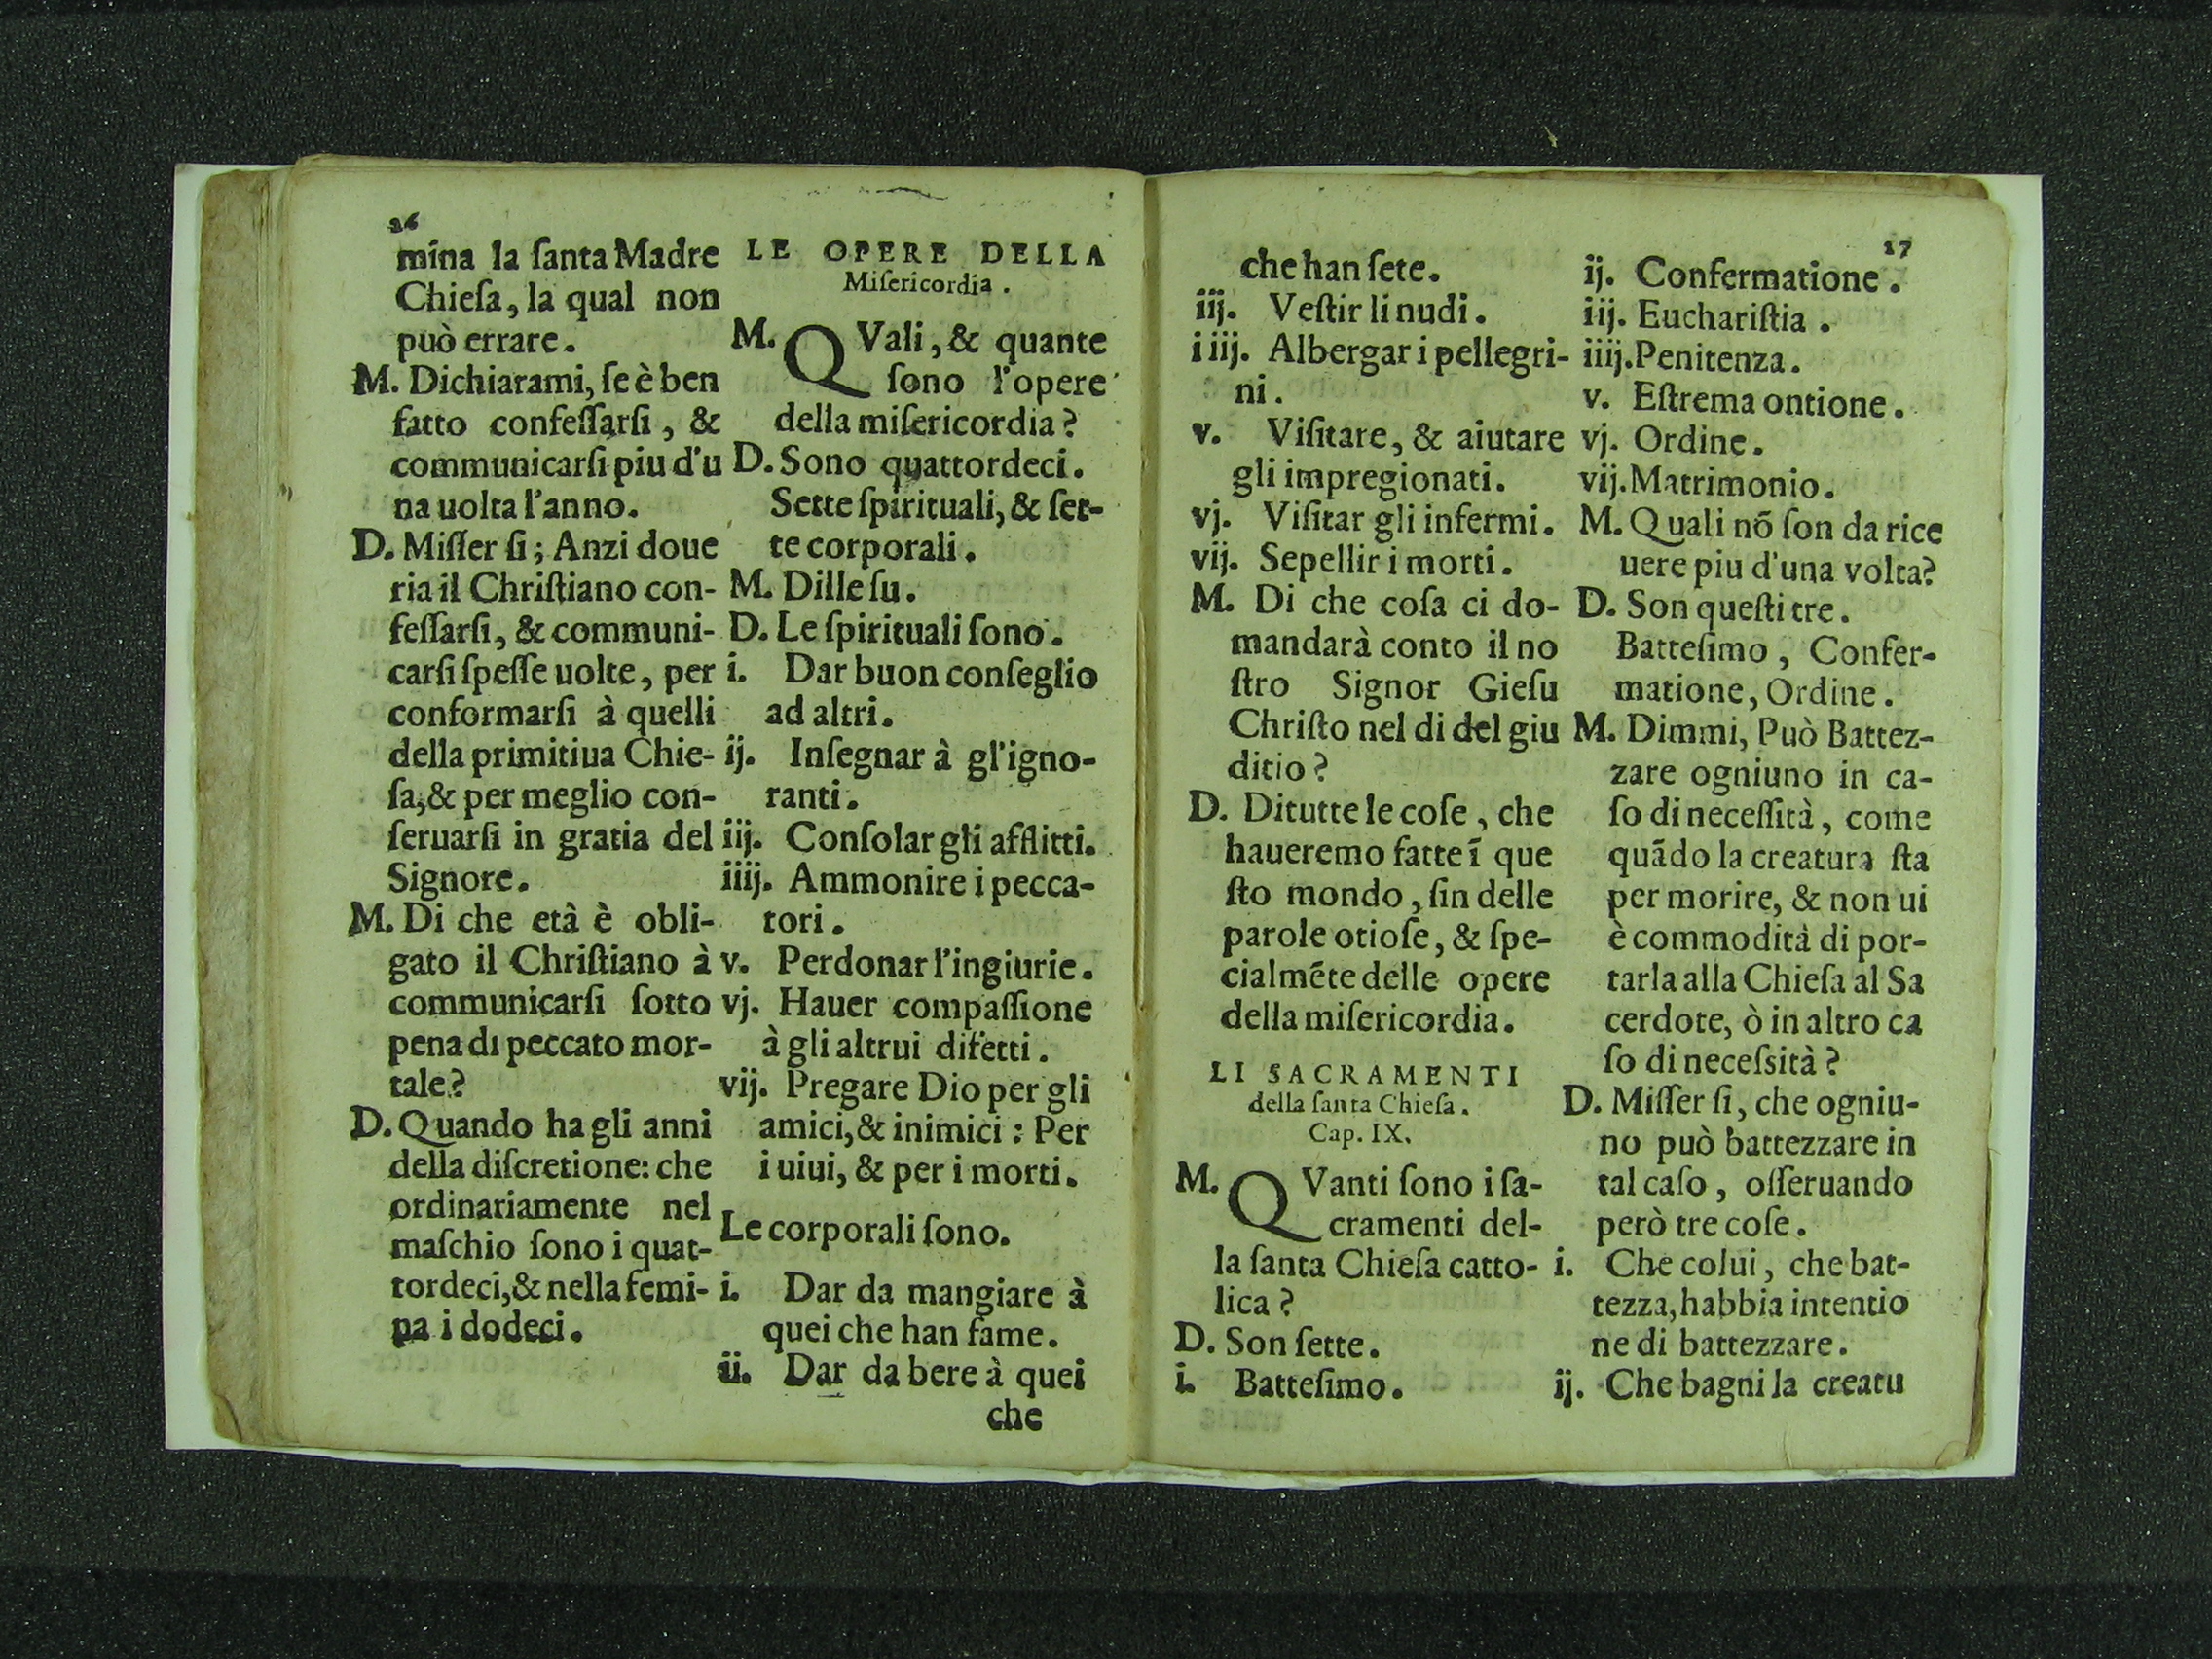 26
mina la ſanta Madre
Chieſa, la qual non
può errare.
M. Dichiarami, ſe è ben
fatto confeſſarſi, &
communicarſi piu d'u
na uolta l'anno.
D. Miſſer ſi; Anzi doue
ria il Chriſtiano con-
feſſarſi, & communi-
carſi ſpeſſe uolte, per
conformarſi à quelli
della primitiua Chie-
ſa, & per meglio con-
ſeruarſi in gratia del
Signore.
M. Di che età è obli-
gato il Chriſtiano à
communicarſi ſotto
pena di peccato mor-
tale?
D. Quando ha gli anni
della diſcretione: che
ordinariamente nel
maſchio ſono i quat-
tordeci, & nella femi-
na i dodeci.
LE OPERE DELLA
Miſericordia.
M. QVali, & quante
ſono l'opere
della miſericordia?
D. Sono quattordeci.
Sette ſpirituali, & ſet-
te corporali.
M. Dille ſu.
D. Le ſpirituali ſono.
i. Dar buon conſeglio
ad altri.
ij. Inſegnar à gl'igno-
ranti.
iij. Conſolar gli afflitti.
iiij. Ammonire i pecca-
tori.
v. Perdonar l'ingiurie.
vj. Hauer compaſſione
à gli altrui difetti.
vij. Pregare Dio per gli
amici, & inimici: Per
i uiui, & per i morti.
Le corporali ſono.
i. Dar da mangiare à
quei che han fame.
ii. Dar da bere à quei
che
27
che han ſete.
iij. Veſtir li nudi.
iiij. Albergar i pellegri-
ni.
v. Viſitare, & aiutare
gli impregionati.
vj. Viſitar gli infermi.
vij. Sepellir i morti.
M. Di che coſa ci do-
mandarà conto il no
ſtro Signor Gieſu
Chriſto nel di del giu
ditio?
D. Di tutte le coſe, che
haueremo fatte ĩ que
ſto mondo, ſin delle
parole otioſe, & ſpe-
cialmẽte delle opere
della miſericordia.
LI SACRAMENTI
della ſanta Chieſa.
Cap. IX.
M. QVanti ſono i ſa-
cramenti del-
la ſanta Chieſa catto-
lica?
D. Son ſette.
i. Batteſimo.
ij. Confermatione.
iij. Euchariſtia.
iiij. Penitenza.
v. Eſtrema ontione.
vj. Ordine.
vij. Matrimonio.
M. Quali nõ ſon da rice
uere piu d'una volta?
D. Son queſti tre.
Batteſimo, Confer-
matione, Ordine.
M. Dimmi, Può Battez-
zare ogniuno in ca-
ſo di neceſſità, come
quãdo la creatura ſta
per morire, & non ui
è commodità di por-
tarla alla Chieſa al Sa
cerdote, ò in altro ca
ſo di neceſsità?
D. Miſſer ſi, che ogniu-
no può battezzare in
tal caſo, oſſeruando
però tre coſe.
i. Che colui, che bat-
tezza, habbia intentio
ne di battezzare.
ij. Che bagni la creatu